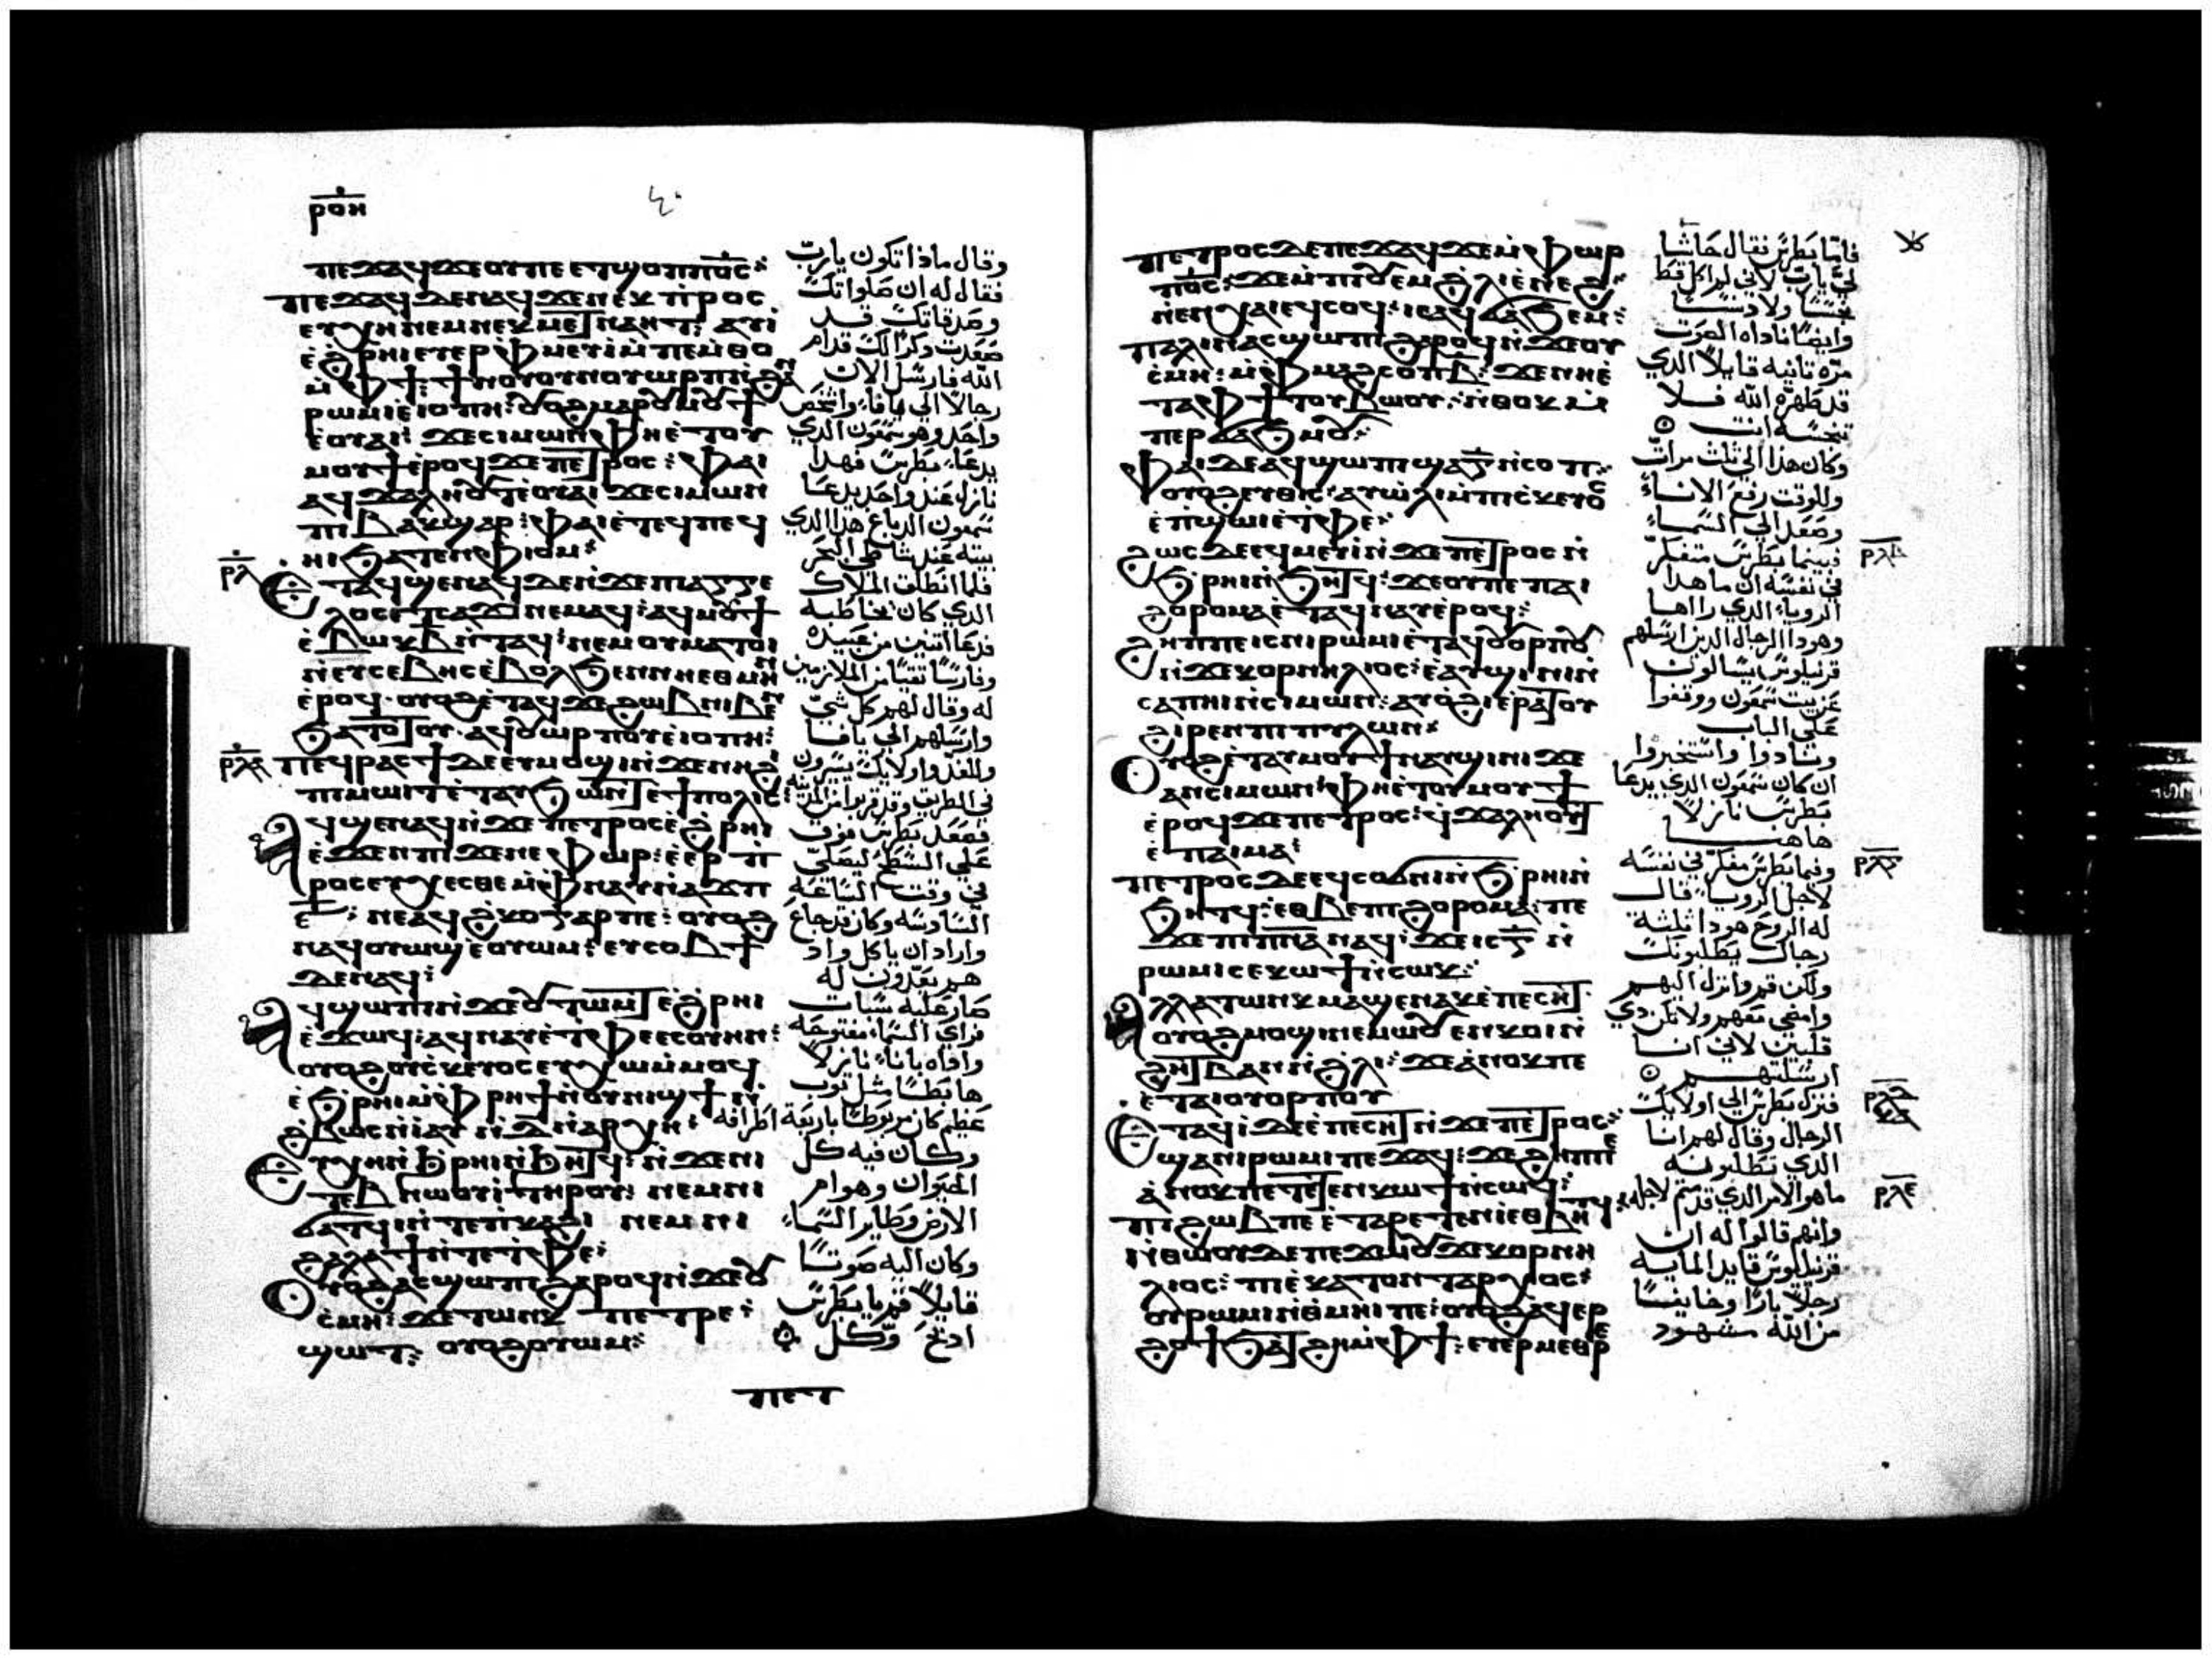 ⲣⲟⲏ
ⲡⲉϫⲁϥ ϫⲉ ⲟⲩ ⲡⲉ ⲉⲧϣⲟⲡ ⲡⲟ̅ⲥ̅:
ⲡⲉϫⲁϥ ⲇⲉ ⲛⲁϥ ϫⲉ ⲛⲉⲕ ⲡⲣⲟⲥ
ⲉⲩⲭⲏ ⲛⲉⲙ ⲛⲉⲕ ⲙⲉⲧⲛⲁⲏⲧ: ⲁⲩⲓ̀
ⲉ̀ϩⲣⲏⲓ ⲉⲩⲉⲣⲫ̀ⲙⲉⲩⲓ̀ ⲙ̀ⲡⲉⲙ̀ⲑⲟ
ⲙ̀ⲫϯ: ϯⲛⲟⲩ ⲟⲩⲛ ⲟⲩⲱⲣⲡ ⲛ̀ϩⲁⲛ
ⲣⲱⲙⲓ ⲉ̀ⲓⲟⲡⲡⲏ: ⲟⲩⲟϩ ⲙⲁⲣⲟⲩⲙⲟⲩϯ
ⲉ̀ⲟⲩⲁⲓ: ϫⲉ ⲥⲓⲙⲱⲛ ⲫⲏ ⲉ̀ⲧⲟⲩ
ⲙⲟⲩϯ ⲉ̀ⲣⲟϥ ϫⲉ ⲡⲉⲧⲣⲟⲥ: ⲫⲁⲓ
ⲁϥϫⲁⲗⲏⲟⲩⲧ ⲉ̀ⲟⲩⲁⲓ ϫⲉ ⲥⲓⲙⲱⲛ
ⲡⲓⲃⲁⲕϣⲁⲣ: ⲫⲁⲓ ⲉ̀ⲧⲉ ⲡⲉϥ
ⲏⲓ ϧⲁⲧⲉⲛ ⲫⲓⲟⲙ:
ⲣⲗ
ⲉⲧⲁϥϣⲉⲛⲁϥ ⲇⲉ ⲛ̀ϫⲉ ⲡⲓⲁⲅⲅⲉ
ⲗⲟⲥ ⲉⲧⲥⲁϫⲓ ⲛⲉⲙⲁϥ: ⲁϥⲙⲟⲩϯ
ⲉ̀ⲃⲱⲕ ⲃ̅ ⲛ̀ⲧⲁϥ: ⲛⲉⲙ ⲟⲩⲙⲁⲧⲟⲓ
ⲛ̀ⲉⲩⲥⲉⲃⲏⲥ ⲉ̀ⲃⲟⲗ ϧⲉⲛ ⲛⲏ ⲉⲑⲙⲏⲛ
ⲉ̀ⲣⲟϥ. ⲟⲩⲟϩ ⲉ̀ⲧⲁϥϫⲉ ϩⲱⲃ ⲛⲓⲃⲉⲛ
ϧⲁⲧⲟⲧⲟⲩ. ⲁϥⲟⲩⲱⲣⲡⲟⲩ ⲉ̀ⲓⲟⲡⲡⲏ:
ⲣⲗⲁ
ⲡⲉϥⲣⲁⲥϯ ⲇⲉ ⲉⲩⲙⲟϣⲓ ⲛ̀ϫⲉ ⲛⲏ ϩⲓ
ⲡⲓⲙⲱⲓⲧ ⲉ̀ⲧⲁⲩϧⲱⲛⲧ ⲉ̀ϯⲡⲟⲗⲓⲥ:
ⲁϥϣⲉⲛⲁϥ ⲛ̀ϫⲉ ⲡⲉⲧⲣⲟⲥ ⲉ̀ϩⲣⲏⲓ
ⲉ̀ϫⲉⲛ ⲡⲓϫⲉⲛⲉⲫⲱⲣ: ⲉ̀ⲉⲣ ⲡ̀
ⲣⲟⲥⲉⲩⲭⲉⲥⲑⲉ ⲙ̀ⲫⲛⲁⲩ ⲛ̀ⲁϫⲡ
ⲋ̅: ⲛⲉ ⲁϥϩ̀ⲕⲟ ⲅⲁⲣ ⲡⲉ: ⲟⲩⲟϩ
ⲛⲁϥⲟⲩⲱϣ ⲉ̀ⲟⲩⲱⲙ: ⲉⲩⲥⲟⲃϯ
ⲇⲉ ⲛⲁϥ:
ⲁϥϣⲱⲡⲓ ⲛ̀ϫⲉ ⲟⲩⲧⲱⲙⲧ ⲉ̀ϩⲣⲏⲓ
ⲉ̀ϫⲱϥ: ⲁϥⲛⲁⲩ ⲉ̀ⲧ̀ⲫⲉ ⲉⲥⲟⲩⲏⲛ:
ⲟⲩⲟϩ ⲟⲩⲥ̀ⲕⲉⲩⲟⲥ ⲉⲩⲭⲱ ⲙ̀ⲙⲟϥ
ⲉ̀ϧⲣⲏⲓ ⲙ̀ⲫⲣⲏϯ ⲛ̀ⲟⲩⲛⲓϣϯ ⲛ̀
ϩ̀ⲃⲱⲥ ⲛ̀ⲓⲁⲩ ⲛ̀ⲇ̅ ⲛ̀ⲁⲣⲭⲏ:
ⲉⲩⲭⲏ ⲛ̀ϧⲣⲏⲓ ⲛ̀ϧⲏⲧϥ: ⲛ̀ϫⲉ ⲛⲓ
ⲧⲉⲃⲛⲱⲟⲩⲓ̀ ⲧⲏⲣⲟⲩ: ⲛⲉⲙ ⲛⲓ
ϭⲁⲧϥⲓ ⲛ̀ⲧⲉ ⲡ̀ⲕⲁϩⲓ ⲛⲉⲙ ⲛⲓ
ϩⲁⲗⲁϯ ⲛ̀ⲧⲉ ⲧ̀ⲫⲉ:
ⲟⲩⲟϩ ⲁⲥϣⲱⲡⲓ ϩⲁⲣⲟϥ ⲛ̀ϫⲉ ⲟⲩ
ⲥ̀ⲙⲏ: ϫⲉ ⲧⲱⲛⲕ ⲡⲉⲧⲣⲉ:
ϣⲱⲧ: ⲟⲩⲟϩ ⲟⲩⲱⲙ:
ⲡⲉⲧ
وقال ماذا تكون يارب
فقال له ان صلواتك
وصدقاتك قد
صعدت ذكرًا لك قدام
الله فارسل الان
رجالًا الي يافا واشخص
واحد وهو سمعون الذي
يدعا بطرس فهذا
نازل عند واحد يدعا
سمعون الدباغ هذا الذي
بيته عند شاطي البحر
فلما انطلق الملاك
الذي كان يخاطبه
فدعا اثنين من عبيده
وفارسًا تقيًا من الملازمين
له وقال لهم كل شي
وارسلهم الي يافا
وللغد واولايك يسيرون
في الطريق وقد قربوا من المدينه
فصعد بطرس فوق
علي السطح ليصلي
في وقت الساعه
السادسه وكان قد جاع
واراد ان ياكل واذ
هم يعدون له
صار عليه سبات
فراي السما مفتوحه
واذاه باناء نازلًا
هابطًا مثل ثوب
عظيم كان مربوطًا باربعة اطرافه
وكان فيه كل
الحيوان وهوام
الارض وطاير السما
وكان اليه صوتًا
قايلًا قم يا بطرس
اذبح وكل
ⲡⲉⲧⲣⲟⲥ ⲇⲉ ⲡⲉϫⲁϥ ϫⲉ ⲙ̀ⲫⲱⲣ
ⲡⲟ̅ⲥ̅: ϫⲉ ⲙ̀ⲡⲓⲟⲩⲉⲙ ϩ̀ⲗⲓ ⲉ̀ⲛⲉϩ:
ⲛ̀ⲉⲛⲭⲁⲓ ⲉϥⲥⲟϥ: ⲓⲉ ⲁϥϭⲁϧⲉⲙ:
ⲡⲁⲗⲓⲛ ⲁⲥϣⲱⲡⲓ ϩⲁⲣⲟϥ ⲛ̀ϫⲉ ⲟⲩ
ⲥ̀ⲙⲏ: ⲙ̀ⲫⲙⲁϩⲥⲟⲡ ⲃ̅: ϫⲉ ⲛⲏ ⲉ̀
ⲧⲁ ⲫϯ ⲧⲟⲩⲃⲱⲟⲩ. ⲛ̀ⲑⲟⲕ ⲙ̀
ⲡⲉⲣϭⲁϧⲙⲟⲩ:
ⲫⲁⲓ ⲇⲉ ⲁϥϣⲱⲡⲓ ϣⲁ ⲅ̅ ⲛ̀ⲥⲟⲡ:
ⲟⲩⲟϩ ⲉⲩⲑⲓⲥ: ⲁⲩⲱ̀ⲗⲓ ⲙ̀ⲡⲓⲥ̀ⲕⲉⲩⲟⲥ
ⲉ̀ⲡ̀ϣⲱⲓ ⲉ̀ⲧ̀ⲫⲉ:
ϩⲱⲥ ⲇⲉ ⲉϥⲙⲉⲩⲓ̀ ⲛ̀ϫⲉ ⲡⲉⲧⲣⲟⲥ ⲛ̀
ϧⲣⲏⲓ ⲛ̀ϧⲏⲧϥ: ϫⲉ ⲟⲩ ⲡⲉ ⲡⲁⲓ
ϩⲟⲣⲟⲙⲁ ⲉ̀ⲧⲁϥⲛⲁⲩ ⲉ̀ⲣⲟϥ:
ϩⲏⲡⲡⲉ ⲓⲥ ⲛⲓⲣⲱⲙⲓ ⲉ̀ⲧⲁϥⲟⲩⲟⲣⲡⲟⲩ
ⲛ̀ϫⲉ ⲕⲟⲣⲛⲏⲗⲓⲟⲥ: ⲉ̀ⲁⲩϣⲓⲛⲓ ⲛ̀
ⲥⲁ ⲡⲏⲓ ⲛ̀ⲥⲓⲙⲱⲛ: ⲁⲩⲟ̀ϩⲓ ⲉ̀ⲣⲁⲧⲟⲩ
ϩⲓⲣⲉⲛ ⲡⲓⲡⲩⲗⲱⲛ:
ⲟⲩⲟϩ ⲉ̀ⲧⲁⲩⲙⲟⲩϯ ⲛⲁⲩϣⲓⲛⲓ ϫⲉ
ⲁⲛ ⲥⲓⲙⲱⲛ: ⲫⲏ ⲉ̀ⲧⲟⲩⲙⲟⲩϯ
ⲉ̀ⲣⲟϥ ϫⲉ ⲡⲉⲧⲣⲟⲥ: ϥϫⲁⲗⲏⲟⲩⲧ
ⲉ̀ⲡⲁⲓⲙⲁ:
ⲡⲉⲧⲣⲟⲥ ⲇⲉ ⲉϥⲥⲟϭⲛⲓ ⲛ̀ϧⲣⲏⲓ ⲛ̀
ϧⲏⲧϥ: ⲉⲑⲃⲉ ⲡⲓϩⲟⲣⲟⲙⲁ: ⲡⲉ
ϫⲉ ⲡⲓⲡ̅ⲛ̅ⲁ̅ ⲛⲁϥ: ϫⲉ ⲓⲥ ⲅ̅ ⲛ̀
ⲣⲱⲙⲓ ⲥⲉⲕⲱϯ ⲛ̀ⲥⲱⲕ:
ⲁⲗⲗⲁ ⲧⲱⲛⲕ ⲙⲁϣⲉⲛⲁⲕ ⲉ̀ⲡⲉⲥⲏⲧ.
ⲟⲩⲟϩ ⲙⲟϣⲓ ⲛⲉⲙⲱⲟⲩ ⲉⲛⲕⲟⲓ ⲛ̀
ϩⲏⲧ ⲃ̅ ⲁⲛ ⲛ̀ϩ̀ⲗⲓ: ϫⲉ ⲁ̀ⲛⲟⲕ ⲡⲉ
ⲉ̀ⲧⲁⲓⲟⲩⲟⲣⲡⲟⲩ
ⲉⲧⲁϥⲓ̀ ⲇⲉ ⲉ̀ⲡⲉⲥⲏⲧ ⲛ̀ϫⲉ ⲡⲉⲧⲣⲟⲥ:
ϣⲁ ⲛⲓⲣⲱⲙⲓ ⲡⲉϫⲁϥ: ϫⲉ ϩⲏⲡⲡⲉ
ⲁ̀ⲛⲟⲕ ⲡⲉ ⲧⲉⲧⲉⲛⲕⲱϯ ⲛ̀ⲥⲱϥ:
ⲡⲓϩⲱⲃ ⲡⲉ ⲉ̀ⲧⲁⲣⲉⲧⲉⲛⲓ̀ ⲉⲑⲃⲏⲧϥ:
ⲛ̀ⲑⲱⲟⲩ ⲇⲉ ⲡⲉϫⲱⲟⲩ ϫⲉ ⲕⲟⲣⲛⲏ
ⲗⲓⲟⲥ: ⲡⲓⲉ̀ⲕⲁⲧⲟⲛⲧⲁⲣⲭⲟⲥ:
ⲟⲩⲣⲱⲙⲓ ⲛ̀ⲑⲙⲏⲓ ⲡⲉ: ⲟⲩⲟϩ ⲁϥⲉⲣ
ϩⲟϯ ϧⲁⲧϩⲏ ⲙ̀ⲫϯ: ⲉⲩⲉⲣⲙⲉⲑⲣⲉ
فاما بطرس فقال حاشا
لي يارب لاني لم اكل قط
نجسًا ولا دنسًا
وايضًا ناداه الصوت
مره ثانيه قايلًا الذي
قد طهره الله فلا
تنجسه انت
وكان هذا الي ثلث مرات
وللوقت رفع الاناء
وصعد الي السماء
فبينما بطرس متفكر
في نفسه ان ما هذا
الرويا الذي راها
وهوذا الرجال الذين ارسلهم
قرنيلوس يسالون
عن بيت سمعون ووقفوا
علي الباب
ونادوا واستخبروا
ان كان سمعون الذي يدعا
بطرس نازلًا
هاهنا
وفيما بطرس مفكر في نفسه
لاجل الرويا قال
له الروح هوذا ثلثة
رجال يطلبونك
ولكن قم وانزل اليهم
وامضي معهم ولا تكن ذي
قلبين لاني انا
ارسلتهم
فنزل بطرس الي اولايك
الرجال وقال لهم انا
الذي تطلبونه
ما هو الامر الذي قدمتم لاجله
وانهم قالوا له ان
قرنيليوس قايد المايه
رجلًا بارًا وخايفًا
من الله مشهود
ⲣⲗⲃ
ⲣⲗⲅ
ⲣⲗⲇ
ⲣⲗⲉ